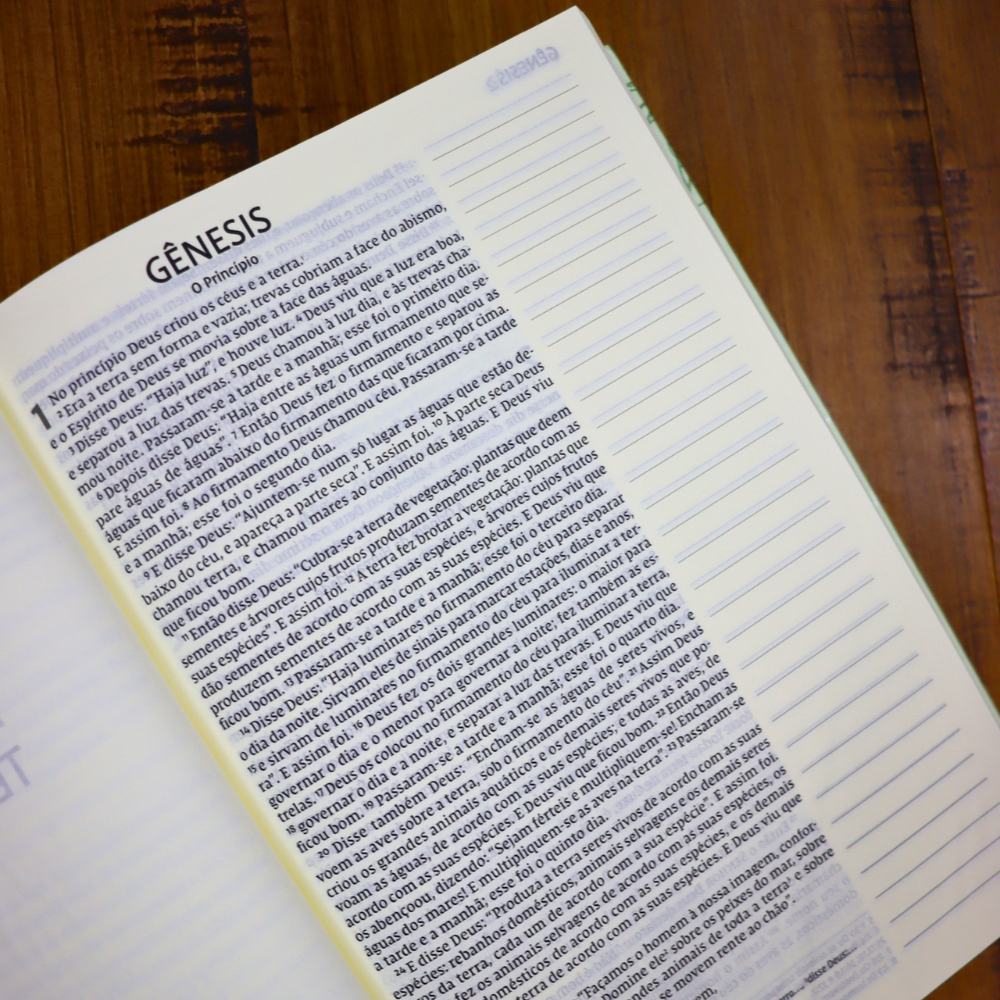 GÊNESIS
O Princípio
1 No princípio Deus criou os céus e a terra.
2 Era a terra sem forma e vazia; trevas cobriam a face do abismo,
e o Espírito de Deus se movia sobre a face das águas.
3 Disse Deus: “Haja luz”, e houve luz. 4 Deus viu que a luz era boa,
e separou a luz das trevas. 5 Deus chamou à luz dia, e às trevas cha-
mou noite. Passaram-se a tarde e a manhã; esse foi o primeiro dia.
6 Depois disse Deus: “Haja entre as águas um firmamento que se-
pare águas de águas”. 7 Então Deus fez o firmamento e separou as
águas que ficaram abaixo do firmamento das que ficaram por cima.
E assim foi. 8 Ao firmamento Deus chamou céu. Passaram-se a tarde
e a manhã; esse foi o segundo dia.
9 E disse Deus: “Ajuntem-se num só lugar as águas que estão de-
baixo do céu, e apareça a parte seca”. E assim foi. 10 À parte seca Deus
chamou terra, e chamou mares ao conjunto das águas. E Deus viu
que ficou bom.
11 Então disse Deus: “Cubra-se a terra de vegetação: plantas que deem
sementes e árvores cujos frutos produzam sementes de acordo com as
suas espécies”. E assim foi. 12 A terra fez brotar a vegetação: plantas que
dão sementes de acordo com as suas espécies, e árvores cujos frutos
produzem sementes de acordo com as suas espécies. E Deus viu que
ficou bom. 13 Passaram-se a tarde e a manhã; esse foi o terceiro dia.
14 Disse Deus: “Haja luminares no firmamento do céu para separar
o dia da noite. Sirvam eles de sinais para marcar estações, dias e anos,
15 e sirvam de luminares no firmamento do céu para iluminar a ter-
ra”. E assim foi. 16 Deus fez os dois grandes luminares: o maior para
governar o dia e o menor para governar a noite; fez também as es-
trelas. 17 Deus os colocou no firmamento do céu para iluminar a terra,
18 governar o dia e a noite, e separar a luz das trevas. E Deus viu que
ficou bom. 19 Passaram-se a tarde e a manhã; esse foi o quarto dia.
20 Disse também Deus: “Encham-se as águas de seres vivos, e
voem as aves sobre a terra, sob o firmamento do céu”. 21 Assim Deus
criou os grandes animais aquáticos e os demais seres vivos que po-
voam as águas, de acordo com as suas espécies; e todas as aves, de
acordo com as suas espécies. E Deus viu que ficou bom. 22 Então Deus
os abençoou, dizendo: “Sejam férteis e multipliquem-se! Encham as
águas dos mares! E multipliquem-se as aves na terra”. 23 Passaram-se
a tarde e a manhã; esse foi o quinto dia.
24 E disse Deus: “Produza a terra seres vivos de acordo com as suas
espécies: rebanhos domésticos, animais selvagens e os demais seres
vos da terra, cada um de acordo com a sua espécie”. E assim foi.
fez os animais selvagens de acordo com as suas espécies, os
domésticos de acordo com as suas espécies, e os demais
terra de acordo com as suas espécies. E Deus viu que
“Façamos o homem à nossa imagem, confor-
Domine ele sobre os peixes do mar, sobre
andes animais de toda a terra e sobre
se movem rente ao chão”.
disse Deus:...
GÊNESIS 2